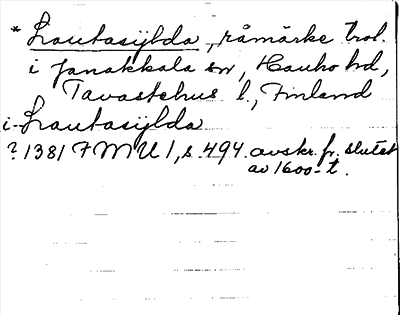 * Lautasijlda, råmärke trol.
i Janakkala sn, Hauho hd,
Tavastehus l., Finland
i Lautasijlda
? 1381 FMU 1, s. 494. avskr. fr. slutet
av 1600-t.